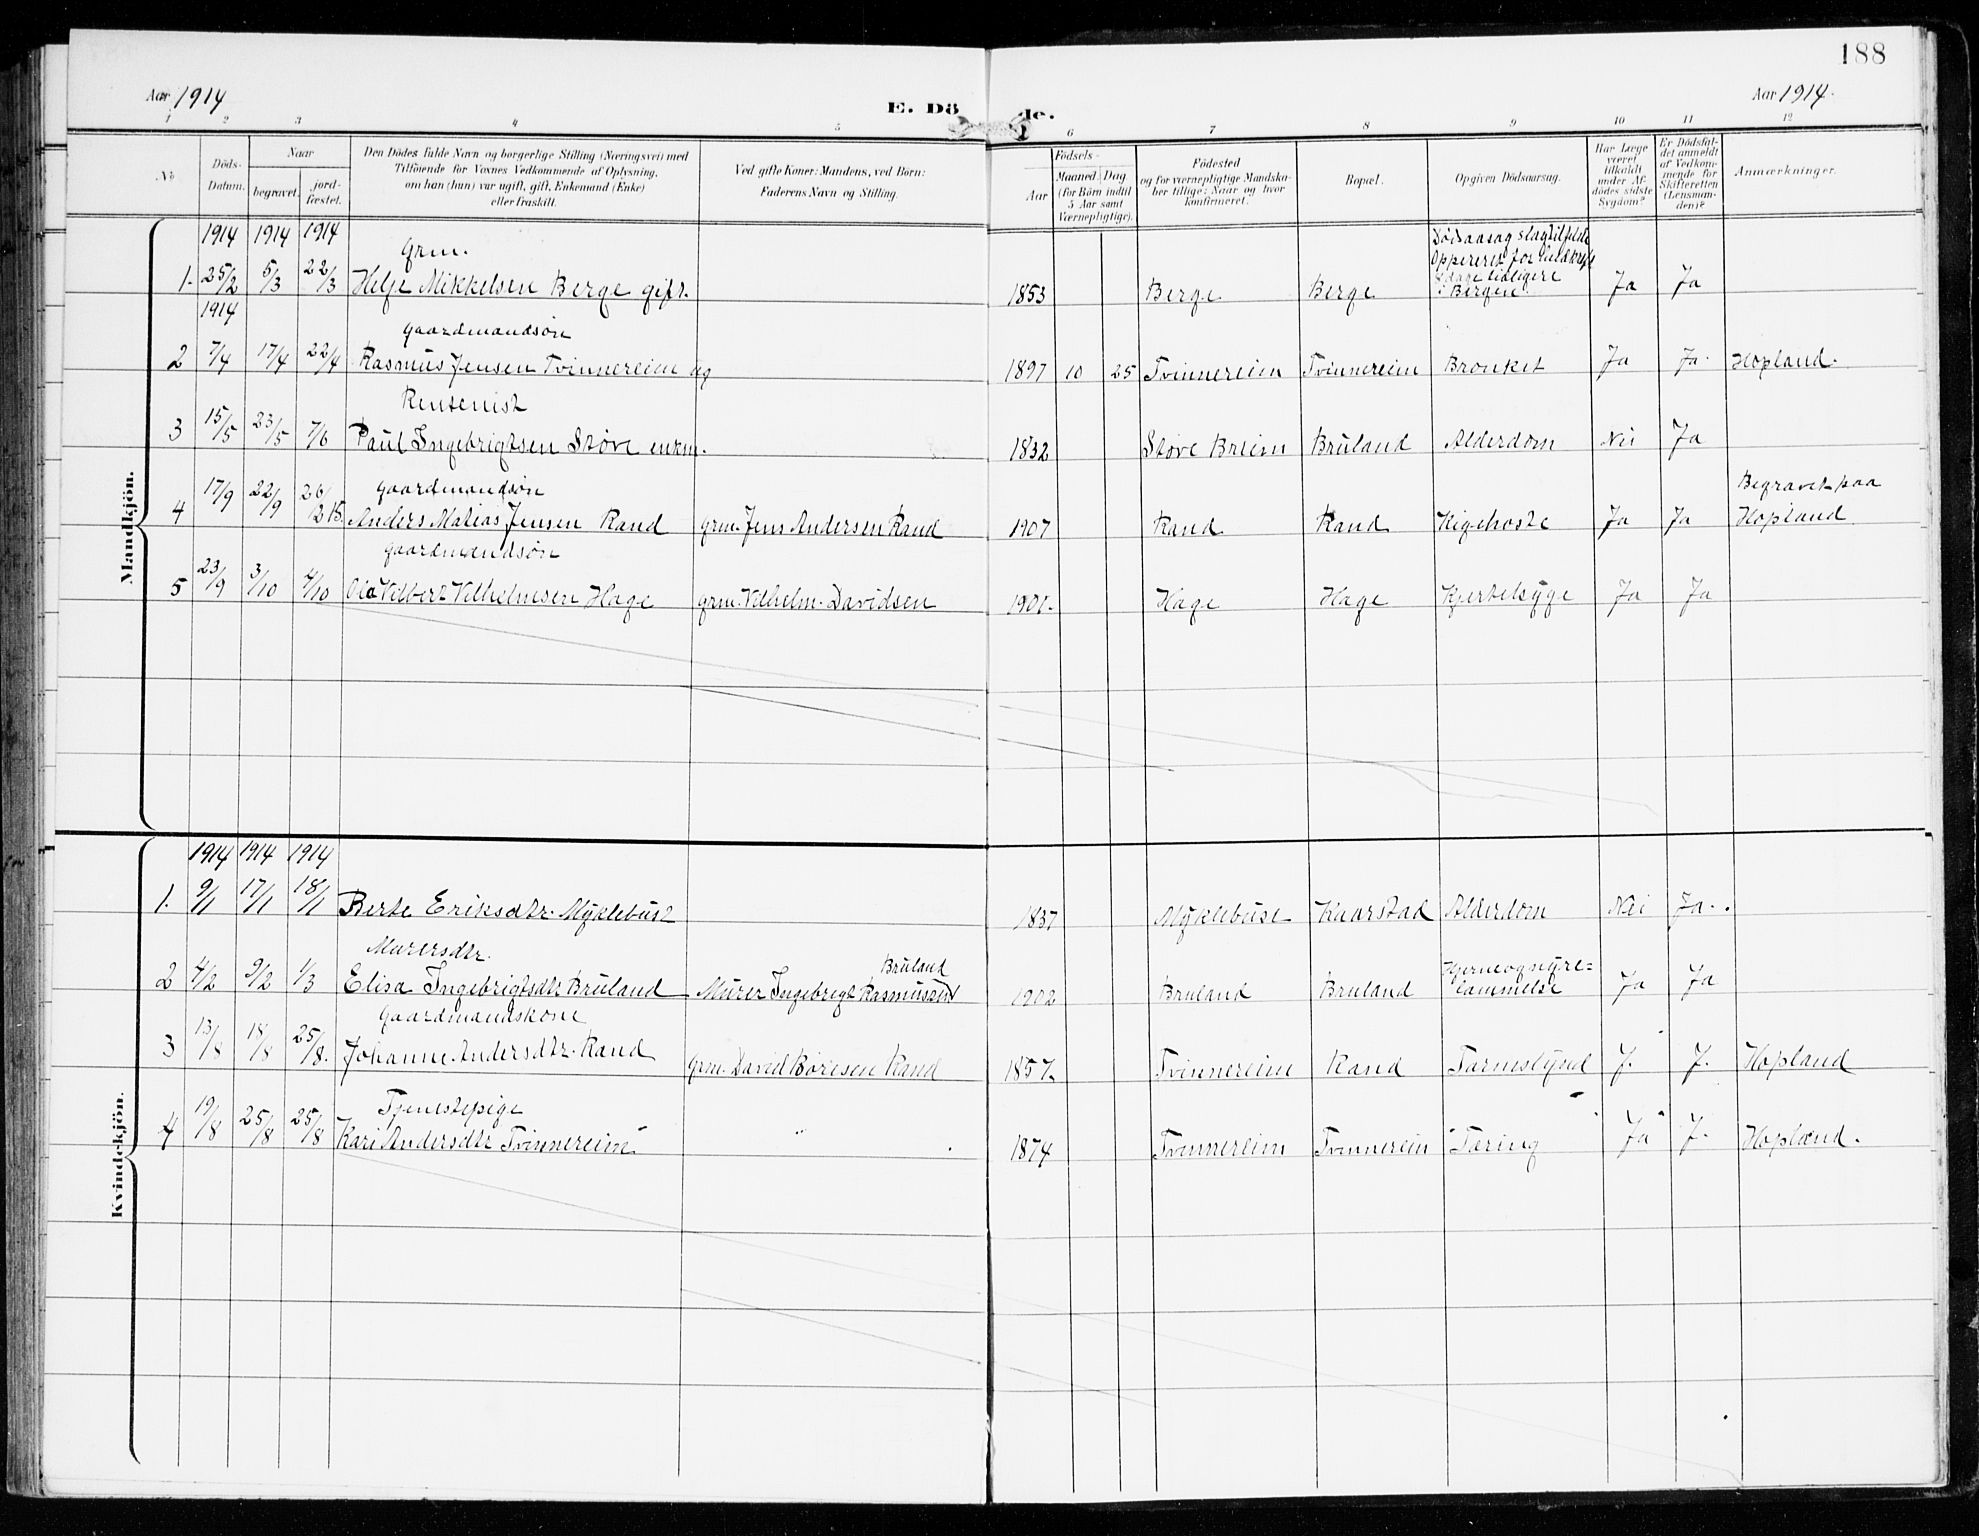 188
Aar 1914
E. Dö
de.
Aar 1914.
1 2 3 4 5 6 7 8 9 10 11 12
No
Döds-Datum.
Naar
begravet.
jord-fæstet.
Den Dödes fulde Navn og borgerlige Stilling (Næringsvei) med
Tilföiende for Voxnes Vedkommende af Oplysning,
om han (hun) var ugift, gift, Enkemand (Enke)
eller fraskilt.
Ved gifte Koner: Mandens, ved Börn:
Faderens Navn og Stilling.
Födsels-
Aar
Maaned. Dag
(for Börn indtil
5 Aar samt
Værnepligtige).
Födested
og for værnepligtige Mandska-
ber tillige: Naar og hvor
konfirmeret.
Bopæl.
Opgiven Dödsaarsag.
Har Læge
været
tilkaldt
under Af-
dödes sidste
Sygdom?
Er Dödsfal-
det anmeldt
af Vedkom-
mende for
Skifteretten
(Lensman-
den)?
Anmærkninger.
Mandkjön.
1914 1914 1914
Grm.
Dödsaasag slagtilfelde
Oppereret for
dage tidligere
i Bergen.
1. 25/2 5/3 22/3 Helje Mikkelsen Berge gift. 1853 Berge Berge Ja Ja
1914
gaardmandsøn
2 7/4 17/4 22/4 Rasmus Jensen Tvinnereim ug 1897 10 25 Tvinnereim Tvinnereim Bronkit Ja Ja. Hopland.
Rentenist
3 15/5 23/5 7/6 Paul Ingebrigtsen Støve enkm. 1832 Støve Breim Bruland Alderdom Nei Ja
gaardmandsøn
Begravet paa
4 17/9 22/9 26/ Anders Matias Jensen Rand grm. Jens Andersen Rand 1907 Rand Rand Kigehoste Ja Ja Hopland
gaardmandsøn
5 23/9 3/10 4/10 Ola Vilbert Vilhelmsen Hage grm. Vilhelm. Davidsen 1901. Hage Hage Kjertelsyge Ja Ja
Kvindekjön.
1914 1914 1914
1. 9/1 17/1 18/1 Berte Eriksdtr. Myklebust 1837 Myklebust Kaarstad Alderdom Nei Ja.
Murersdtr.
Bruland
2 4/2 9/2 1/3 Elisa Ingebrigtsdtr Bruland Murer Ingebrigt Rasmussen 1902 Bruland Bruland Hjerneognyre=
lammelse Ja Ja
Gaardmandskone
3 13/8 18/8 25/8. Johanne Andersdtr. Rand Grm. David Børesen Rand 1857. Tvinnereim Rand Tarmslynd J. J. Hopland
Tjenestepige
4 19/8 25/8 25/8 Kari Andersdtr Tvinnereim " 1874 Tvinnereim Tvinnereim Tæring Ja J. Hopland.